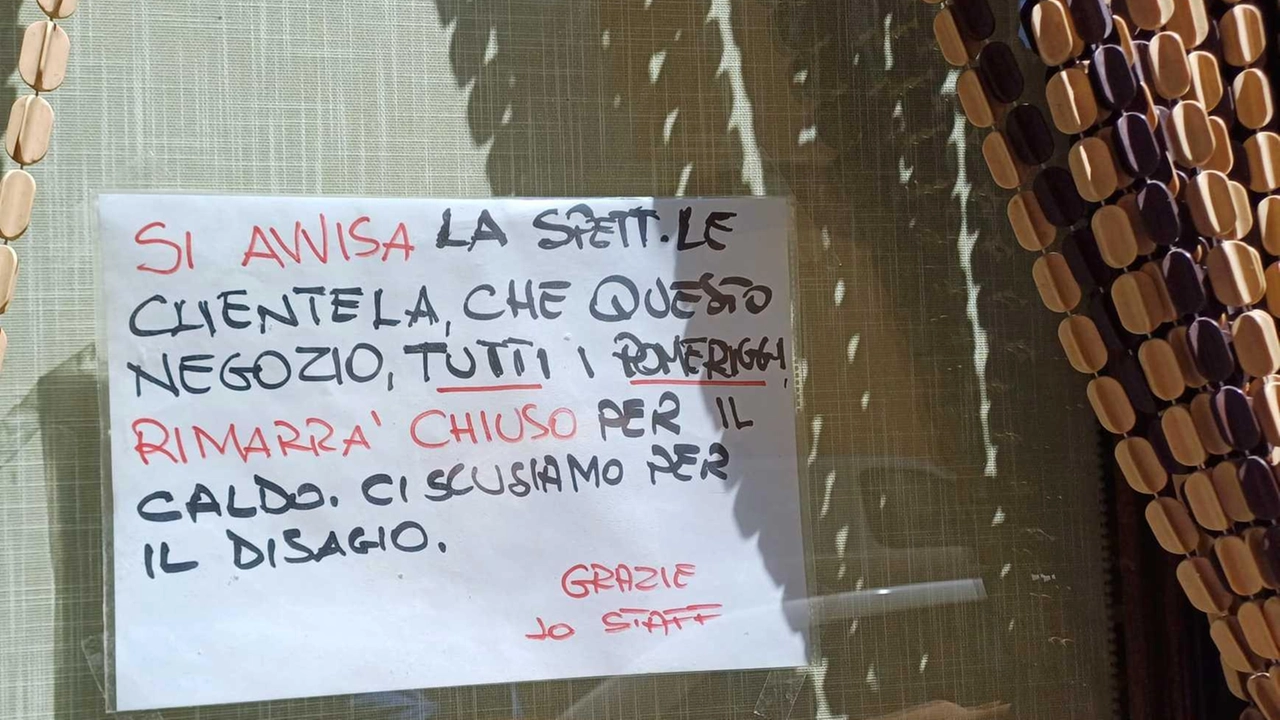 SI AVVISA LA SPETT.LE
CLIENTELA, CHE QUESTO
NEGOZIO, TUTTI I POMERIGGI,
RIMARRA' CHIUSO PER IL
CALDO. CI SCUSIAMO PER
IL DISAGIO.
GRAZIE
LO STAFF